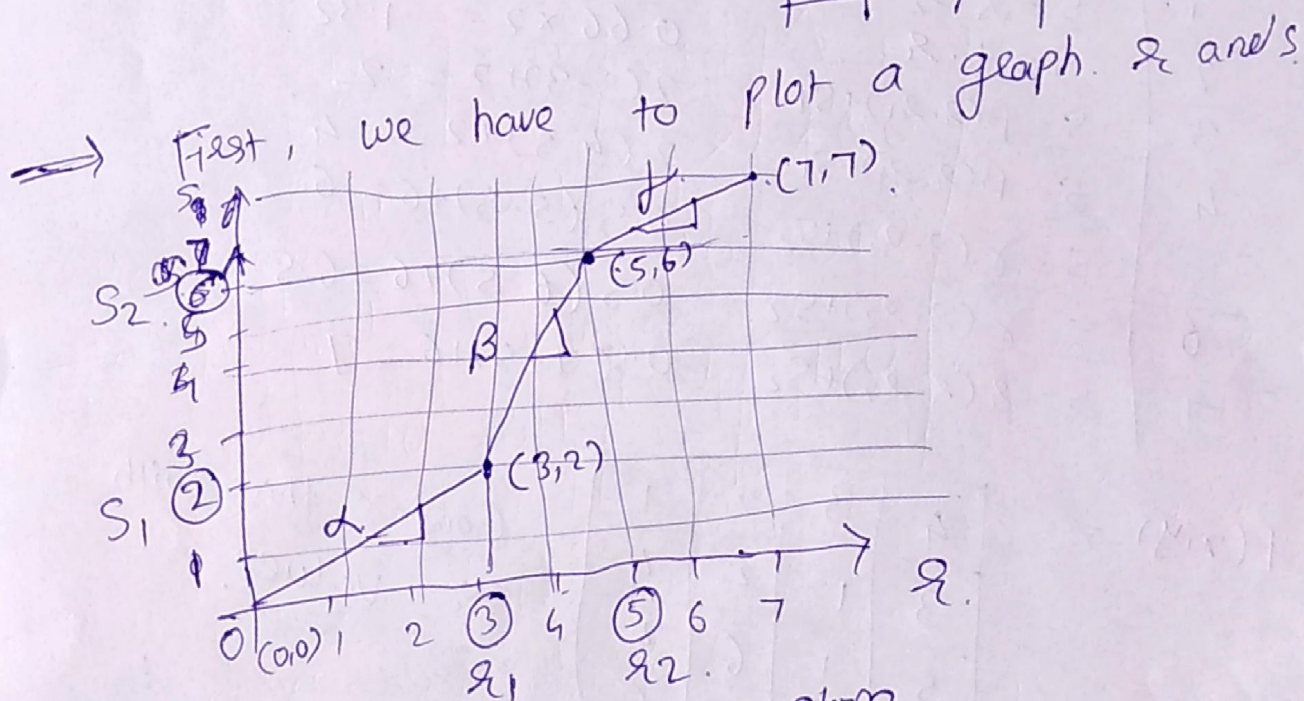 First, we have to plot a graph. r and s.
S
7
S2 6
5
4
3
S1 2
1
α
β
γ
(7,7).
(5,6)
(3,2)
0 (0,0) 1 2 3 4 5 6 7 r.
r1 r2.